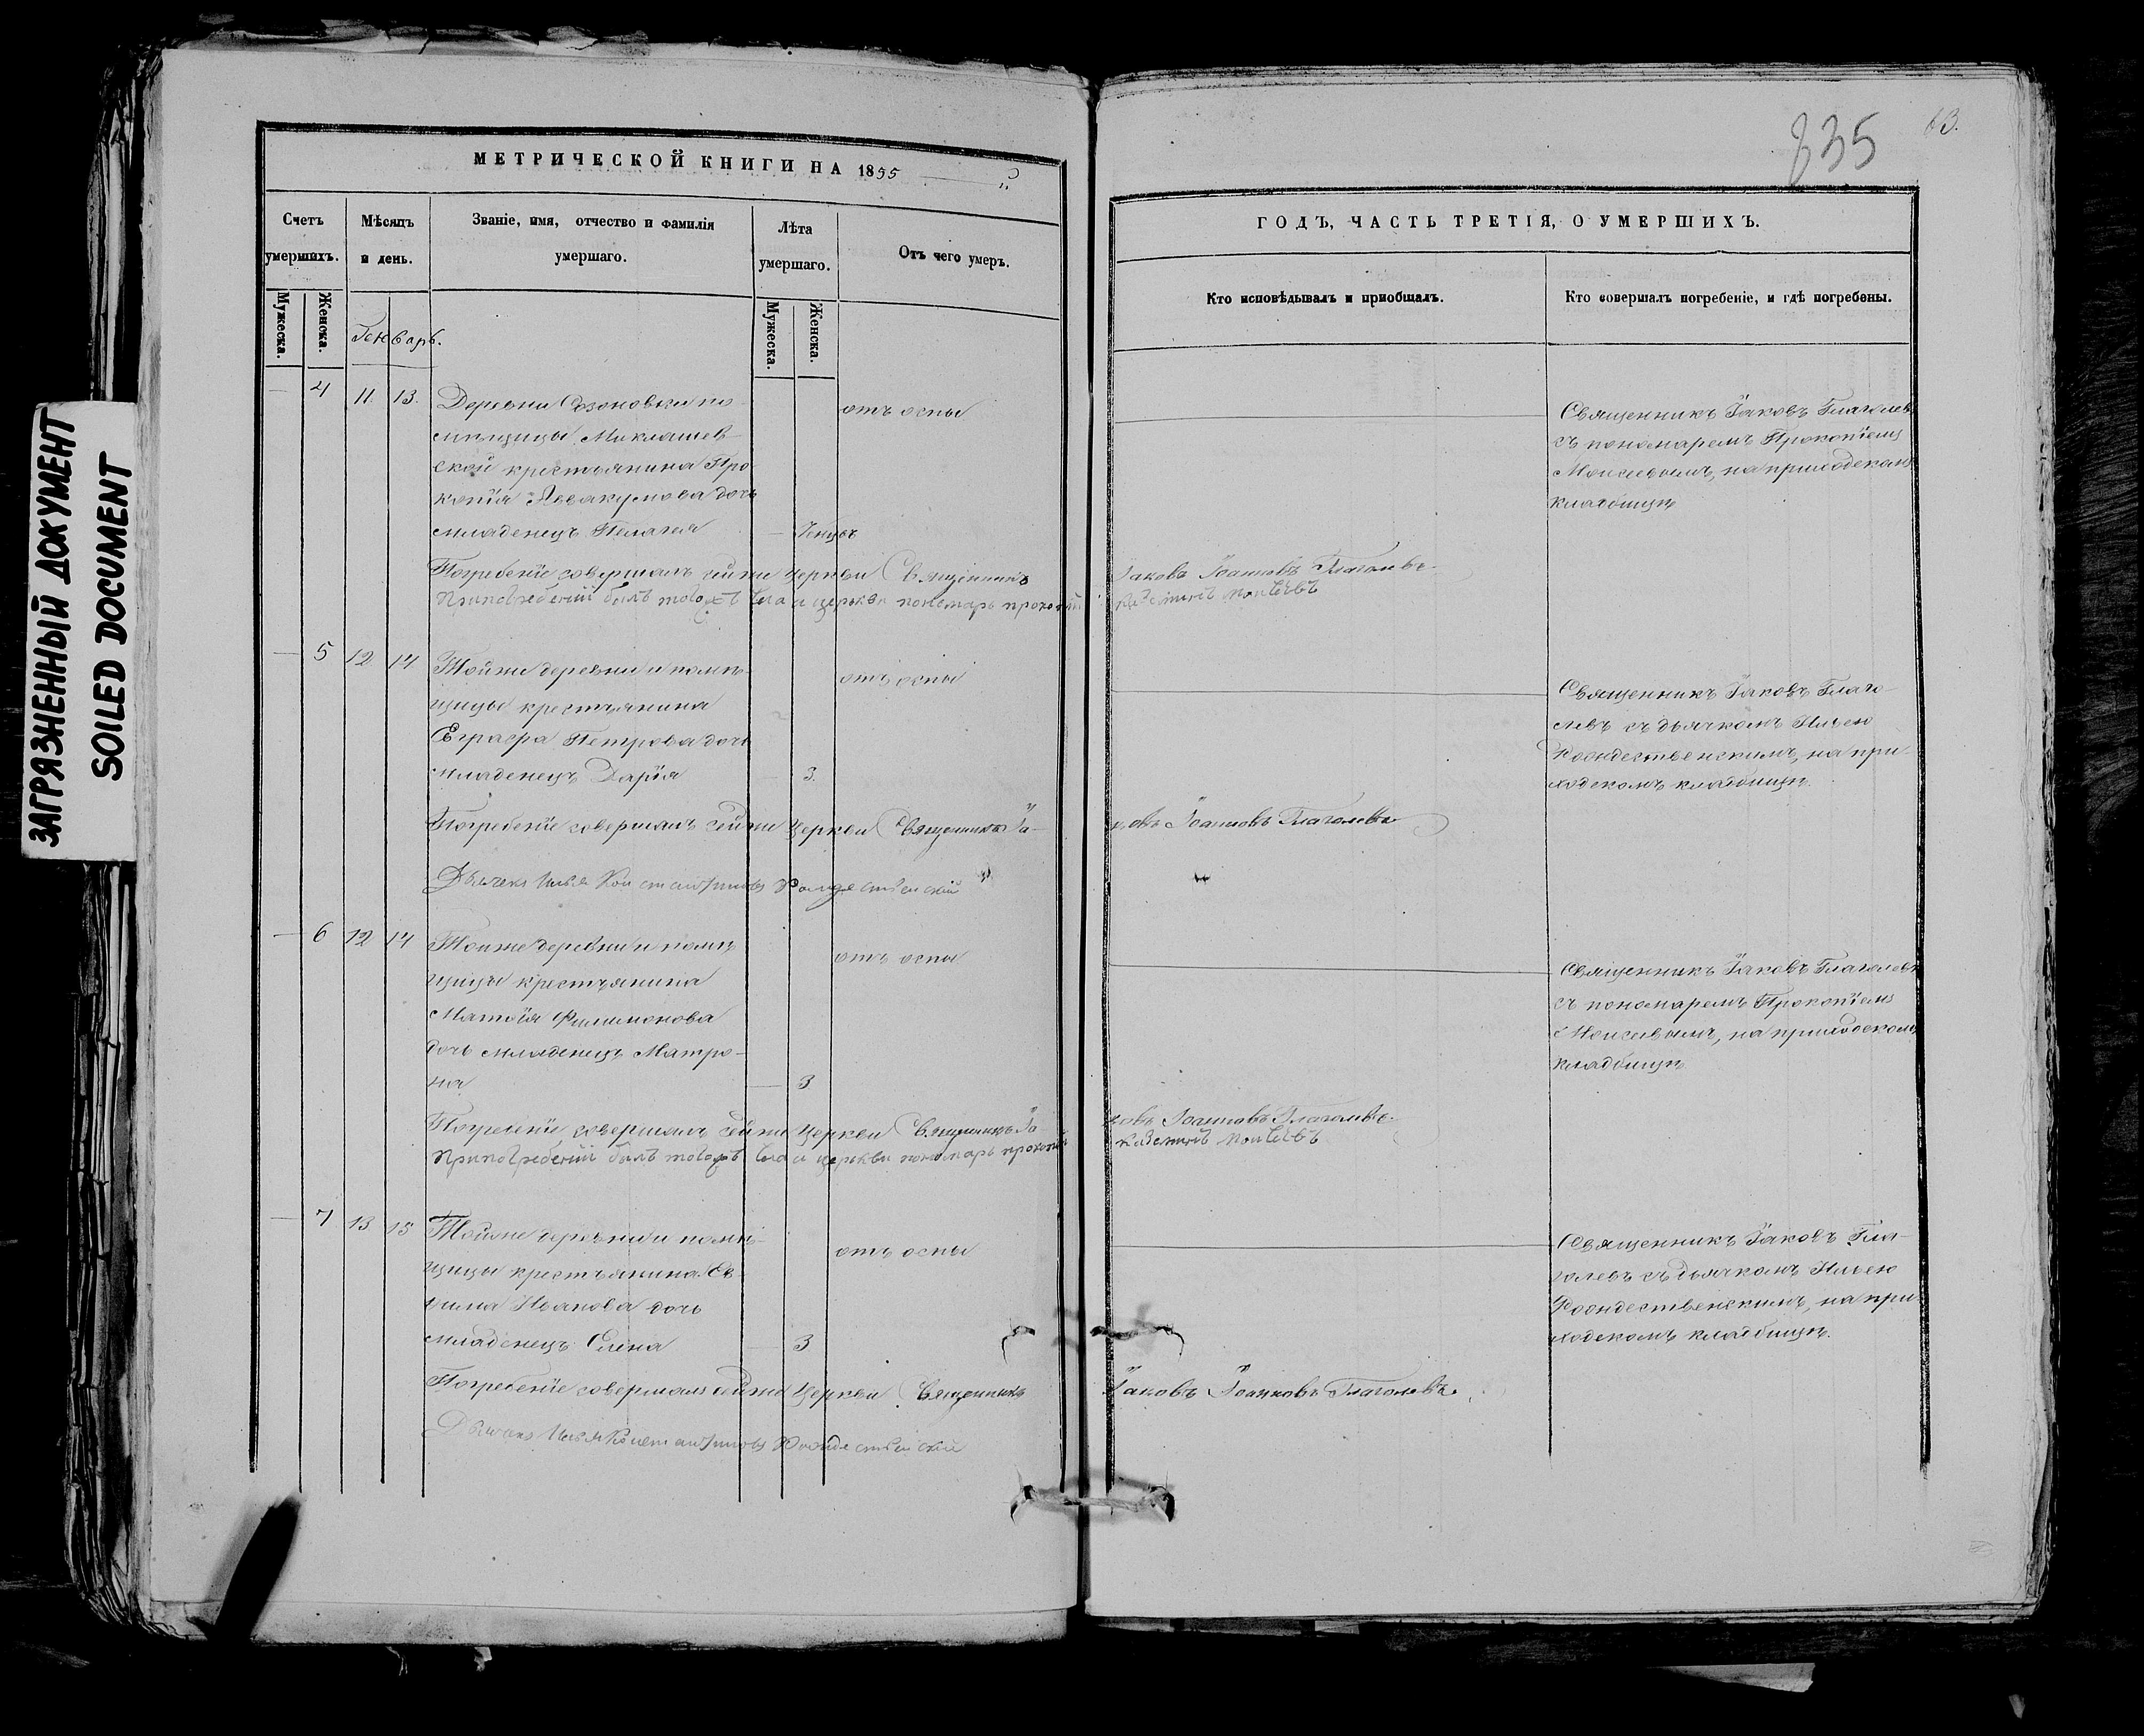 ЗАГРЯЗНЕННЫЙ ДОКУМЕНТ
SOILED DOCUMENT
МЕТРИЧЕСКОЙ КНИГИ НА 1855
Счетъ умершихъ.
Мѣсяцъ и день.
Званіе, имя, отчество и фамилія умершаго.
Лѣта умершаго.
Отъ чего умеръ.
Мужеска.
Женска.
Генварь.
Мужеска.
Женска.
4 11. 13. Деревни Созоновки по-
мѣщицы Миклашев-
ской крестьянина Про
копія Аввакумова дочь
младенецъ Пелагея
отъ оспы
Погребеніе совершалъ сейже Церкви Священникъ
При погребеніи былъ тояже церькви пономарь прокопій
5 12 14 Тойже деревни и помѣ-
щицы крестьянина
Евграфа Петрова дочь
младенецъ Дарія 3.
отъ оспы
Погребеніе совершалъ сейже Церкви Священникъ Іа-
Дьячекъ Илья Константиновъ Рождественскій
6 12 14 Тойже деревни и помѣ
щицы крестьянина
Матѳія Филимонова
дочь младенецъ Матро-
на 3
отъ оспы
Погребеніе совершалъ сейже Церкви Священникъ Іа
При погребеніи былъ тояже церькви пономарь прокопій
7 13 15 Тойже деревни и помѣ-
щицы крестьянина Еѳ-
има Иванова дочь
младенецъ Елена 3
отъ оспы
Погребеніе совершалъ сейже Церкви Священникъ
Дьячекъ Илья Константиновъ Рождественскій
835
63.
ГОДЪ, ЧАСТЬ ТРЕТІЯ, О УМЕРШИХЪ.
Кто исповѣдывалъ и пріобщалъ.
Кто совершалъ погребеніе, и гдѣ погребены.
Священникъ Іаковъ Глаголевъ
съ пономаремъ Прокопіемъ
Моисеевымъ, на приходскомъ
кладбищѣ
Іаковъ Іоанновъ Глаголевъ.
Моисѣевъ
Священникъ Іаковъ Глаго-
левъ съ дьячкомъ Ильею
Рождественскимъ, на при-
ходскомъ кладбищѣ.
ковъ Іоанновъ Глаголевъ
Священникъ Іаковъ Глаголевъ
съ пономаремъ Прокопіемъ
Моисеевымъ, на приходскомъ
кладбищѣ
ковъ Іоанновъ Глаголевъ.
Моисѣевъ
Священникъ Іаковъ Гла-
голевъ съ дьячкомъ Ильею
Рождественскимъ, на при-
ходскомъ кладбищѣ.
Іаковъ Іоанновъ Глаголевъ.